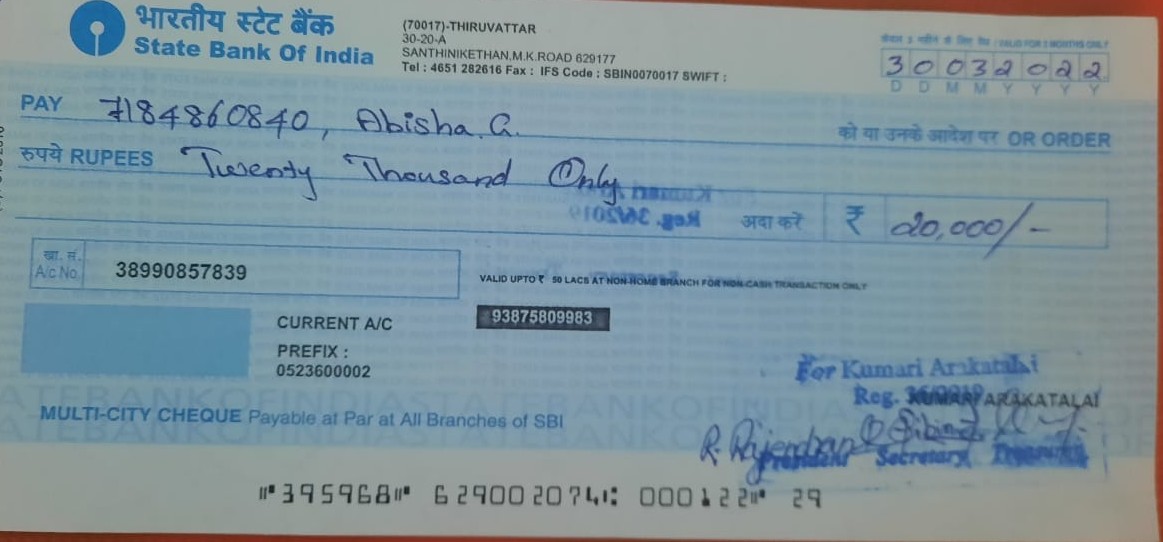 भारतीय स्टेट बैंक
State Bank Of India
(70017)-THIRUVATTAR
30-20-A
SANTHINIKETHAN,M.K.ROAD 629177
Tel : 4651 282616 Fax : IFS Code : SBIN0070017 SWIFT :
VALID FOR 3 MONTHS ONLY
30032022
D D M M Y Y Y Y
PAY 7184860840, Abisha. G.
को या उनके आदेश पर OR ORDER
रुपये RUPEES Twenty Thousand Only
अदा करें ₹ 20,000/-
खा. सं.
A/c No. 38990857839
VALID UPTO ₹ 50 LACS AT NON-HOME BRANCH FOR NON-CASH TRANSACTION ONLY
93875809983
CURRENT A/C
PREFIX :
0523600002
For Kumari Arakatalai
Reg. ARAKATALAI
MULTI-CITY CHEQUE Payable at Par at All Branches of SBI
R. Rajendran
President Secretary Treasurer
⑈395968⑈ 629002074⑆ 000122⑈ 29